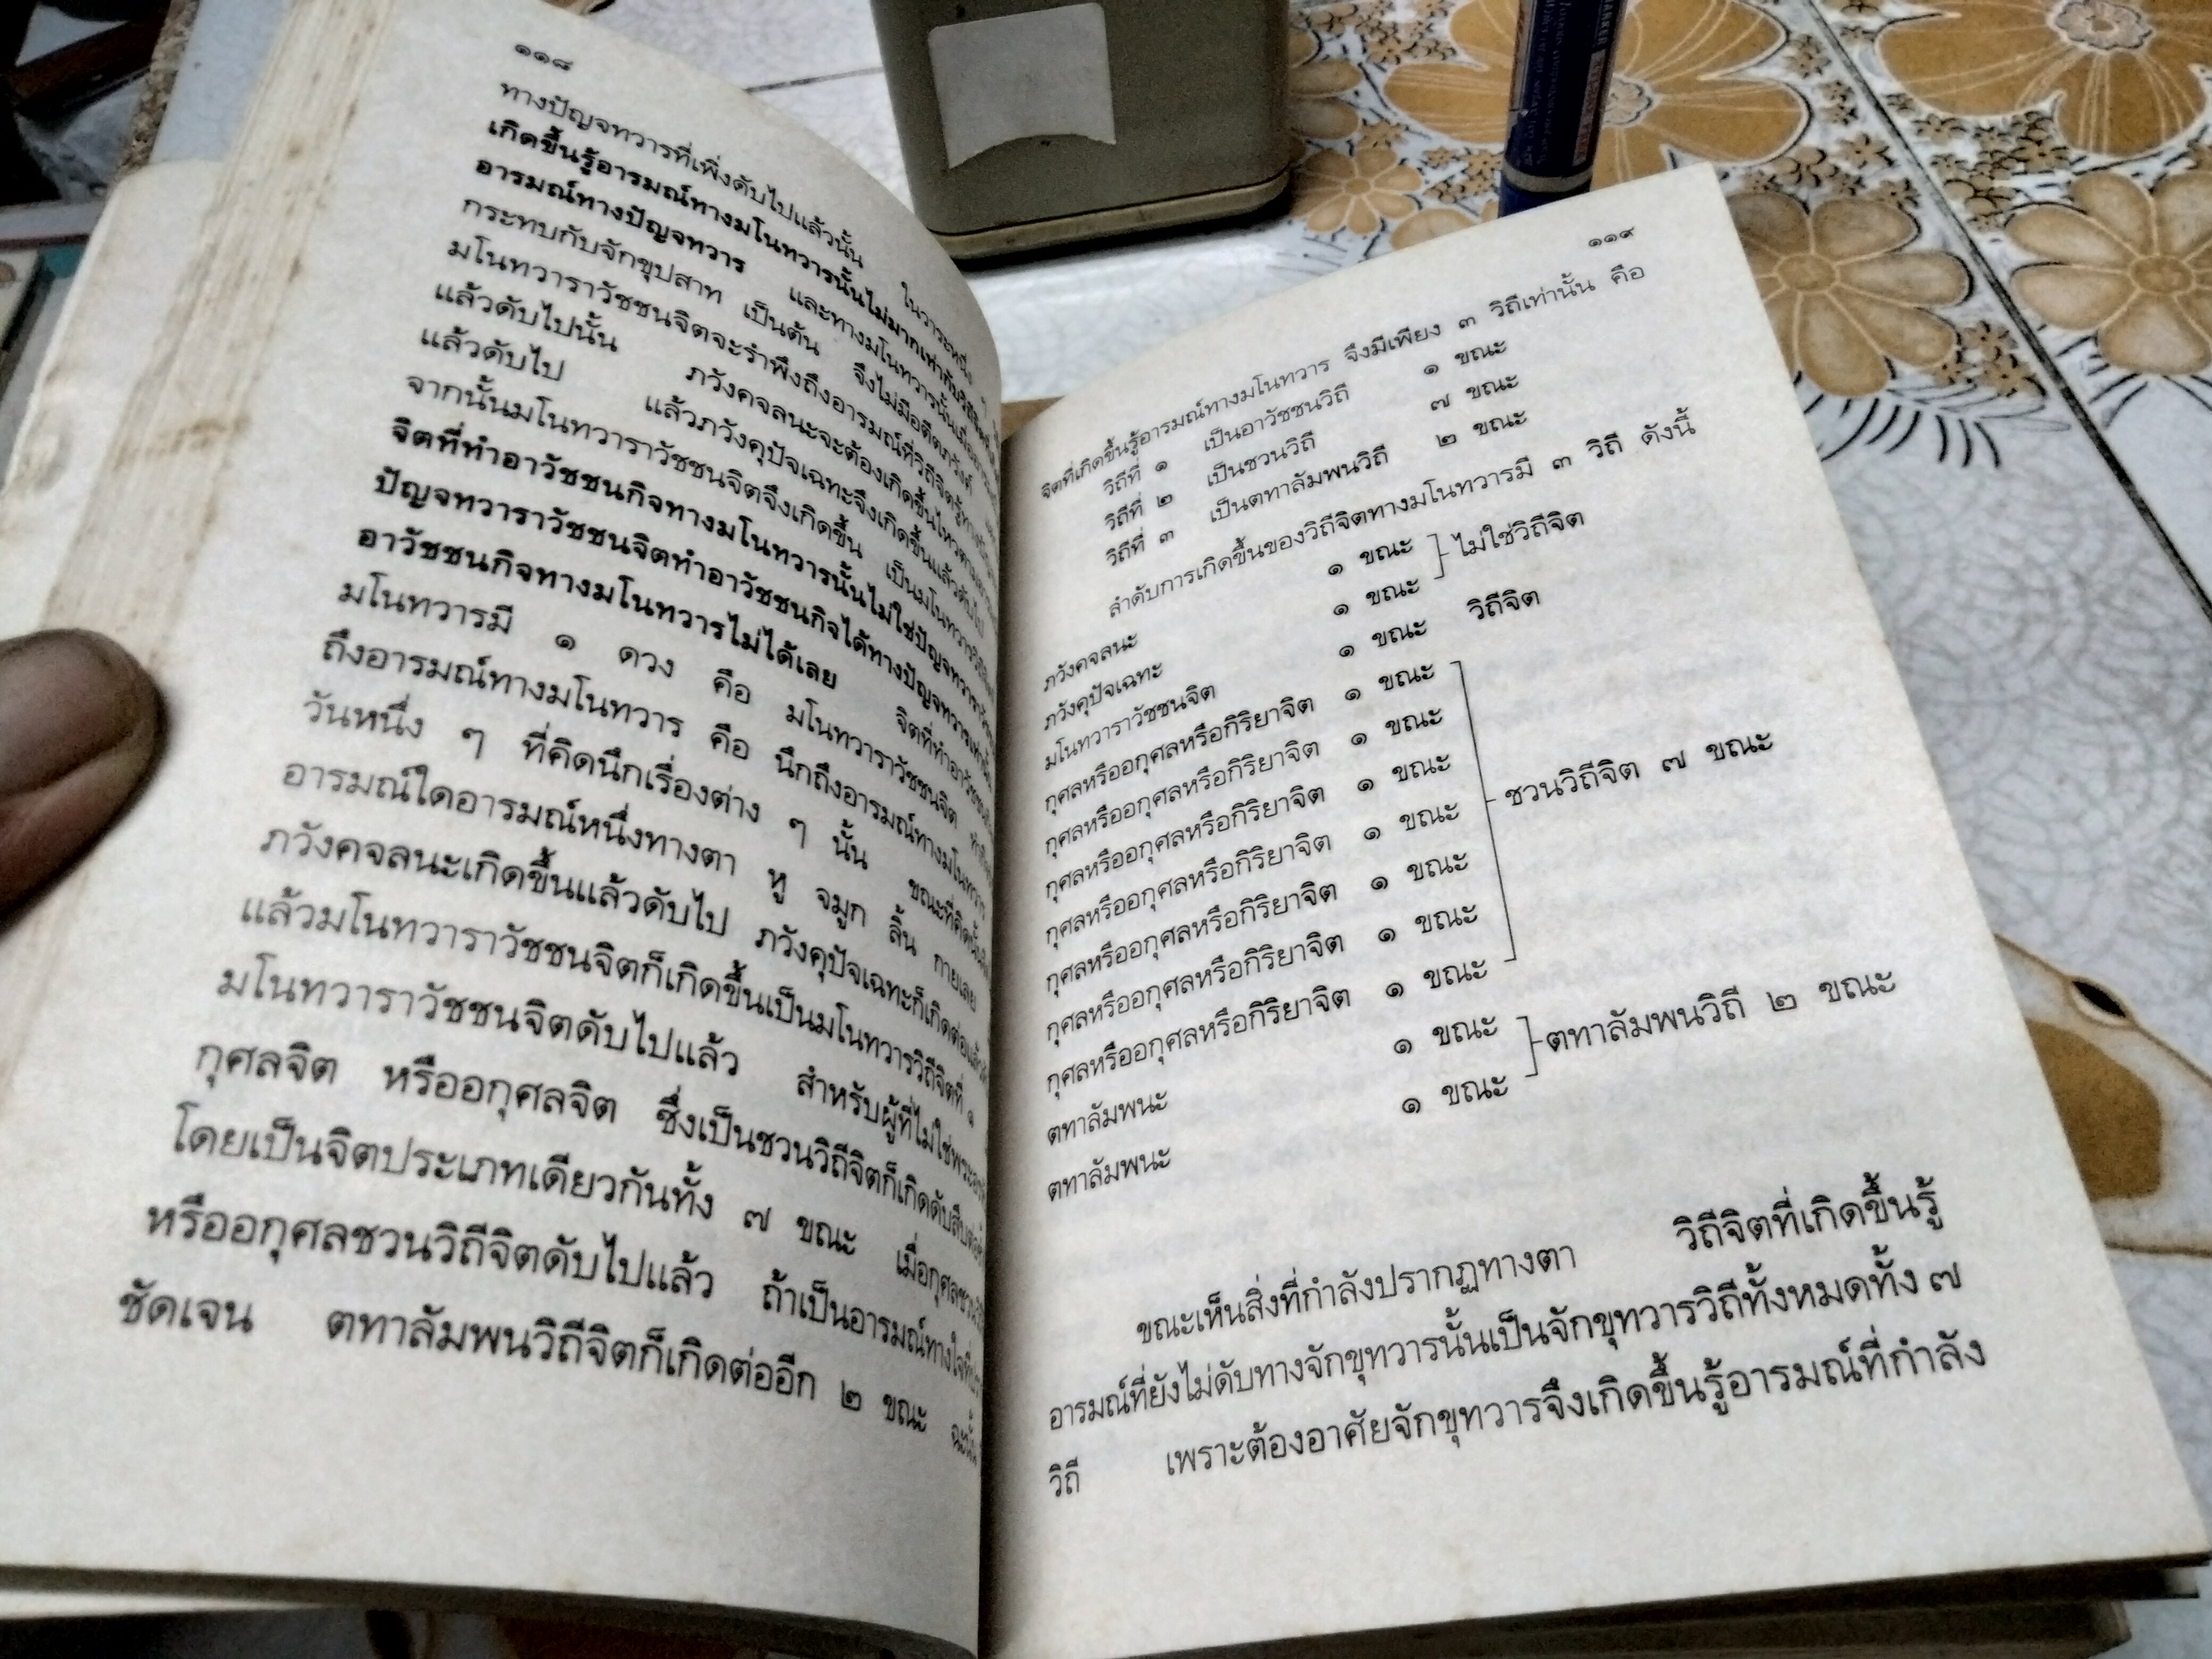 ๑๑๘
ทางปัญจทวารที่เพิ่งดับไปแล้วนั้น ในวาระหนึ่ง
เกิดขึ้นรู้อารมณ์ทางมโนทวารนั้นไม่มากเท่ากับวิถีจิตที่
อารมณ์ทางปัญจทวาร และทางมโนทวารนั้นเมื่ออารมณ์
กระทบกับจักขุปสาท เป็นต้น จึงไม่มีอตีตภวังค์
มโนทวาราวัชชนจิตจะรำพึงถึงอารมณ์ที่วิถีจิตรู้ทาง
แล้วดับไปนั้น ภวังคจลนะจะต้องเกิดขึ้นไหวตาม
แล้วดับไป แล้วภวังคุปัจเฉทะจึงเกิดขึ้นแล้วดับไป
จากนั้นมโนทวาราวัชชนจิตจึงเกิดขึ้น เป็นมโนทวารวิถีจิต
จิตที่ทำอาวัชชนกิจทางมโนทวารนั้นไม่ใช่ปัญจทวาราวัชชน
ปัญจทวาราวัชชนจิตทำอาวัชชนกิจได้ทางปัญจทวารเท่านั้น
อาวัชชนกิจทางมโนทวารไม่ได้เลย จิตที่ทำอาวัชชนกิจ
มโนทวารมี ๑ ดวง คือ มโนทวาราวัชชนจิต
ถึงอารมณ์ทางมโนทวาร คือ นึกถึงอารมณ์ทางมโนทวาร
วันหนึ่ง ๆ ที่คิดนึกเรื่องต่าง ๆ นั้น ขณะที่คิดนั้น
อารมณ์ใดอารมณ์หนึ่งทางตา หู จมูก ลิ้น กายเลย
ภวังคจลนะเกิดขึ้นแล้วดับไป ภวังคุปัจเฉทะก็เกิดต่อแล้ว
แล้วมโนทวาราวัชชนจิตก็เกิดขึ้นเป็นมโนทวารวิถีจิตที่ ๑
มโนทวาราวัชชนจิตดับไปแล้ว สำหรับผู้ที่ไม่ใช่พระอรหันต์
กุศลจิต หรืออกุศลจิต ซึ่งเป็นชวนวิถีจิตก็เกิดดับสืบต่อ
โดยเป็นจิตประเภทเดียวกันทั้ง ๗ ขณะ เมื่อกุศลชวน
หรืออกุศลชวนวิถีจิตดับไปแล้ว ถ้าเป็นอารมณ์ทางใจที่
ชัดเจน ตทาลัมพนวิถีจิตก็เกิดต่ออีก ๒ ขณะ ฉะนั้น
๑๑๙
จิตที่เกิดขึ้นรู้อารมณ์ทางมโนทวาร จึงมีเพียง ๓ วิถีเท่านั้น คือ
วิถีที่ ๑ เป็นอาวัชชนวิถี ๑ ขณะ
วิถีที่ ๒ เป็นชวนวิถี ๗ ขณะ
วิถีที่ ๓ เป็นตทาลัมพนวิถี ๒ ขณะ
ลำดับการเกิดขึ้นของวิถีจิตทางมโนทวารมี ๓ วิถี ดังนี้
ภวังคจลนะ ๑ ขณะ
ภวังคุปัจเฉทะ ๑ ขณะ ไม่ใช่วิถีจิต
มโนทวาราวัชชนจิต ๑ ขณะ วิถีจิต
กุศลหรืออกุศลหรือกิริยาจิต ๑ ขณะ
กุศลหรืออกุศลหรือกิริยาจิต ๑ ขณะ
กุศลหรืออกุศลหรือกิริยาจิต ๑ ขณะ
กุศลหรืออกุศลหรือกิริยาจิต ๑ ขณะ ชวนวิถีจิต ๗ ขณะ
กุศลหรืออกุศลหรือกิริยาจิต ๑ ขณะ
กุศลหรืออกุศลหรือกิริยาจิต ๑ ขณะ
กุศลหรืออกุศลหรือกิริยาจิต ๑ ขณะ
ตทาลัมพนะ ๑ ขณะ
ตทาลัมพนะ ๑ ขณะ ตทาลัมพนวิถี ๒ ขณะ
ขณะเห็นสิ่งที่กำลังปรากฏทางตา วิถีจิตที่เกิดขึ้นรู้
อารมณ์ที่ยังไม่ดับทางจักขุทวารนั้นเป็นจักขุทวารวิถีทั้งหมดทั้ง ๗
วิถี เพราะต้องอาศัยจักขุทวารจึงเกิดขึ้นรู้อารมณ์ที่กำลัง